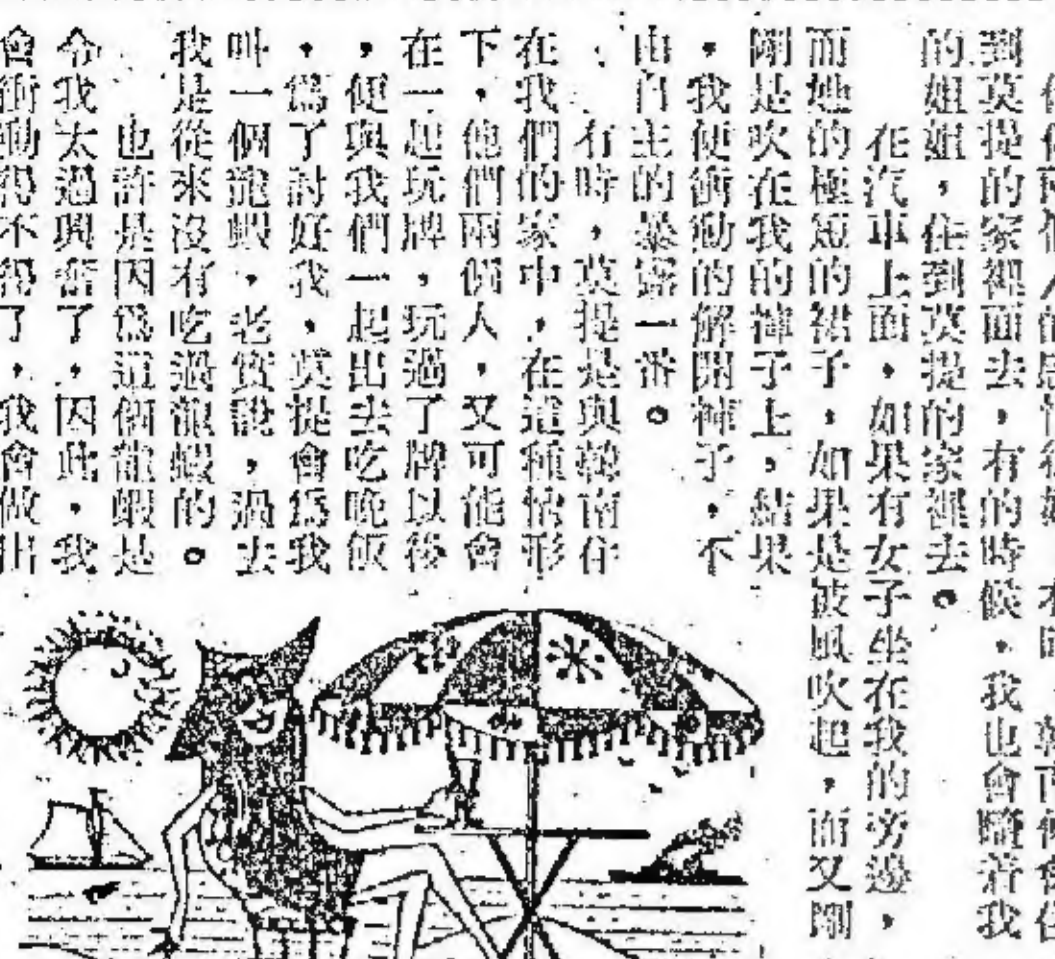 到莫提的家裡面去,有的時候,我也會瞞着我
的姐姐,住到莫提的家裡去。
在汽車上面,如果有女子坐在我的旁邊,
而她的極短的裙子,如果是被風吹起,而又剛
剛是吹在我的褲子上,結果
,我便衝動的解開褲子,不
由自主的暴露一番。
有時,莫提是與韓南住
在我們的家中,在這種情形
下,他們兩個人,又可能會
在一起玩牌,玩過了牌以後
,便與我們一起出去吃晚飯
,為了討好我,莫提會為我
叫一個龍蝦,老實說,過去
我是從來沒有吃過龍蝦的。
也許是因為這個龍蝦是
令我太過興奮了,因此,我
會衝動得不得了,我會做出